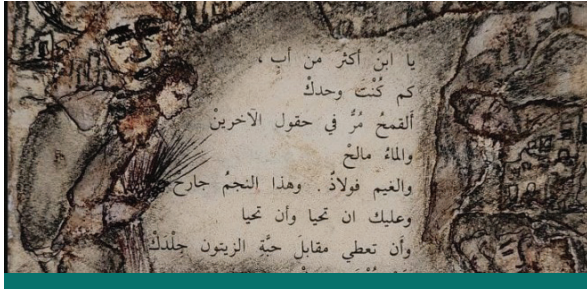 يا ابنَ أكثرَ من أبٍ ،
كم كُنْتَ وحدكْ
ألقمحُ مُرٌّ في حقول الآخرينْ
والماءُ مالحْ
والغيم فولاذٌ . وهذا النجمُ جارح
وعليك ان تحيا وأن تحيا
وأن تعطي مقابلَ حبَّةِ الزيتون جِلْدَكْ